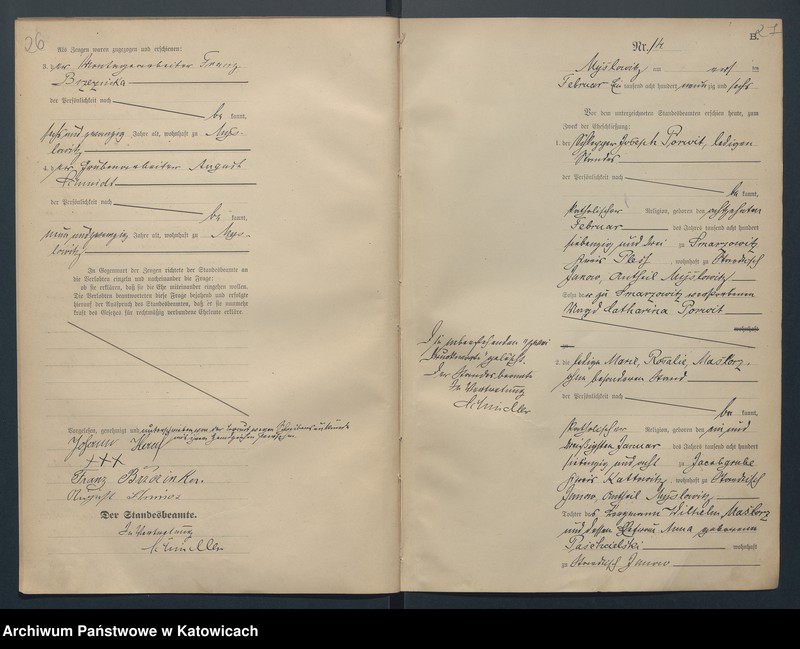 26
Als Zeugen waren zugezogen und erschienen:
3. der Montagearbeiter Franz
Brzezinka
der Persönlichkeit nach
be kannt,
sechsundzwanzig Jahre alt, wohnhaft zu Mys-
lowitz
4. der Grubenarbeiter August
Schmidt
der Persönlichkeit nach
be kannt,
neunundzwanzig Jahre alt, wohnhaft zu Mys-
lowitz
In Gegenwart der Zeugen richtete der Standesbeamte an
die Verlobten einzeln und nacheinander die Frage:
ob sie erklären, daß sie die Ehe miteinander eingehen wollen.
Die Verlobten beantworteten diese Frage bejahend und erfolgte
hierauf der Ausspruch des Standesbeamten, daß er sie nunmehr
kraft des Gesetzes für rechtmäßig verbundene Eheleute erkläre.
Vorgelesen, genehmigt und unterschrieben von der wegen Schreibensunkunde
mit ihrem Handzeichen versehen
Johann
+++
Franz
August
Der Standesbeamte.
In Vertretung
Schindler
Die vorstehenden zwei
Druckworte gelöscht.
Der Standesbeamte
In Vertretung
Schindler
B.
27
Nr. 14
Myslowitz am
Februar Ein tausend acht hundert neunzig und sechs
Vor dem unterzeichneten Standesbeamten erschien heute, zum
Zweck der Eheschließung:
1. der Joseph Porwit, ledigen
Standes
der Persönlichkeit nach
be kannt,
katholischer Religion, geboren den achtzehnten
Februar des Jahres tausend acht hundert
siebenzig und drei zu Smarzowitz
Kreis Pless, wohnhaft zu Städtisch
Janow, Antheil Myslowitz
Sohn der zu Smarzowitz verstorbenen
Magd Catharina Porwit
wohnhaft
zu
2. die ledige Marie, Rosalie, Maslorz
ohne besonderen Stand
der Persönlichkeit nach
be kannt,
katholischer Religion, geboren den ein und
dreißigsten Januar des Jahres tausend acht hundert
siebenzig und acht zu Jacobgrube
Kreis Kattowitz, wohnhaft zu Städtisch
Janow, Antheil Myslowitz
Tochter des Bergmann Wilhelm Maslorz
und dessen Ehefrau Anna geborenen
Paschcielski wohnhaft
zu Städtisch Janow
Archiwum Państwowe w Katowicach